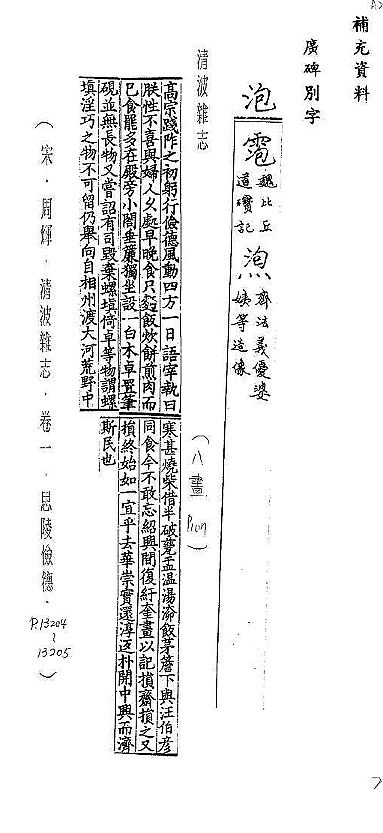 補充資料
廣碑別字
泡
雹
魏比丘
道瓚記
齊法義優婆
姨等造像
(八畫 P107)
清波雜志
高宗踐阼之初躬行儉德風動四方一日語宰執曰
朕性不喜與婦人久處早晚食只麪飯炊餅煎肉而
已食罷多在殿旁小閤垂簾獨坐設一白木卓置筆
硯並無長物又嘗詔有司毀棄螺填倚卓等物謂螺
填淫巧之物不可留仍舉向自相州渡大河荒野中
寒甚燒柴借半破甕盂温湯渝飯茅簷下與汪伯彦
同食今不敢忘紹興間復紆奎畫以記損齋損之又
損終始如一宜乎去華崇實還淳返朴開中興而濟
斯民也
(宋.周煇.清波雜志.卷一.思陵儉德.P.13204~13205)